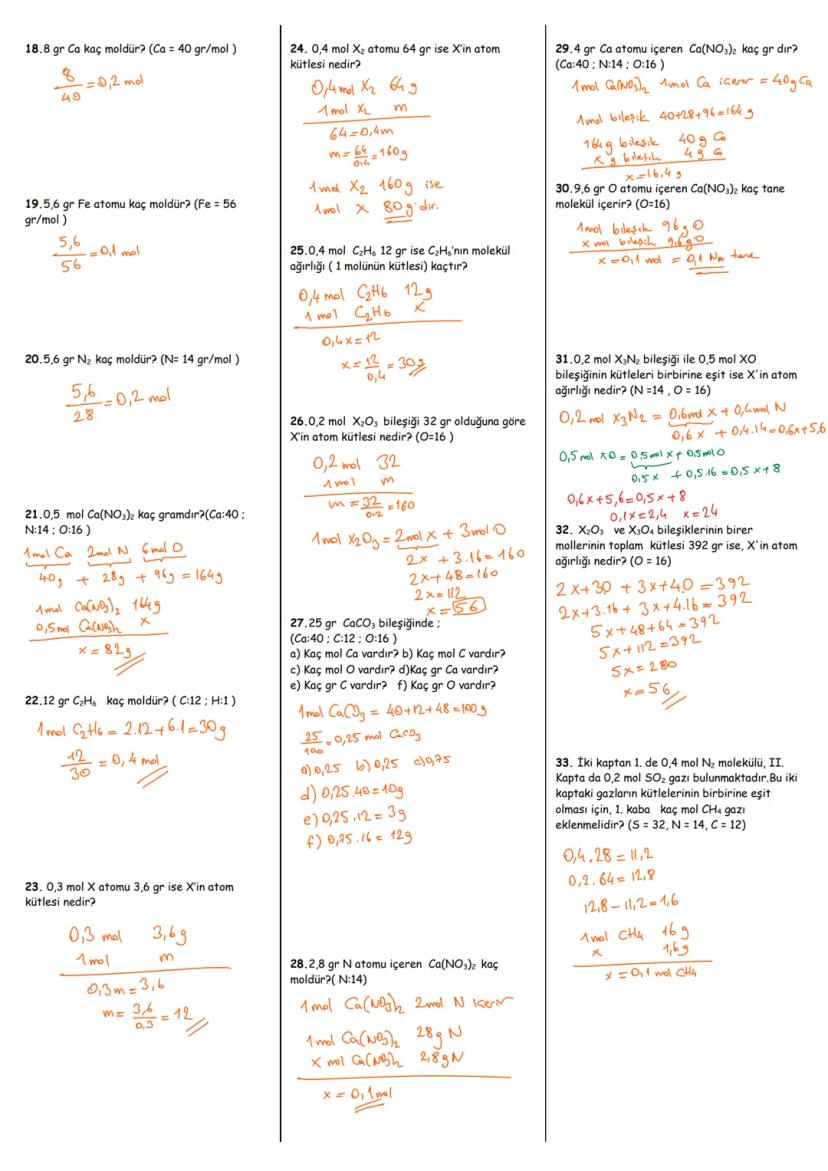 18.8 gr Ca kaç moldür? (Ca = 40 gr/mol )
8/40 = 0,2 mol
19.5,6 gr Fe atomu kaç moldür? (Fe = 56
gr/mol )
5,6/56 = 0,1 mol
20.5,6 gr N₂ kaç moldür? (N= 14 gr/mol )
5,6/28 = 0,2 mol
21.0,5 mol Ca(NO₃)₂ kaç gramdır?(Ca:40 ;
N:14 ; O:16 )
1mol Ca 2mol N 6mol O
40g + 28g + 96g = 164g
1mol Ca(NO₃)₂ 164g
0,5mol Ca(NO₃)₂ x
x = 82g
22.12 gr C₂H₆ kaç moldür? ( C:12 ; H:1 )
1mol C₂H₆ = 2.12+6.1=30g
12/30 = 0,4 mol
23. 0,3 mol X atomu 3,6 gr ise X'in atom
kütlesi nedir?
0,3 mol 3,6g
1mol m
0,3m=3,6
m= 3,6/0,3 = 12
24. 0,4 mol X₂ atomu 64 gr ise X'in atom
kütlesi nedir?
0,4mol X₂ 64g
1mol X₂ m
64=0,4m
m= 64/0,4 =160g
1mol X₂ 160g ise
1mol X 80g'dir.
25.0,4 mol C₂H₆ 12 gr ise C₂H₆'nın molekül
ağırlığı ( 1 molünün kütlesi) kaçtır?
0,4 mol C₂H₆ 12g
1 mol C₂H₆ x
0,4x=12
x= 12/0,4 = 30g
26.0,2 mol X₂O₃ bileşiği 32 gr olduğuna göre
X'in atom kütlesi nedir? (O=16 )
0,2mol 32
1mol m
m = 32/0,2 =160
1mol X₂O₃ = 2mol X + 3mol O
2x + 3.16 = 160
2x+48=160
2x=112
x=56
27.25 gr CaCO₃ bileşiğinde ;
(Ca:40 ; C:12 ; O:16 )
a) Kaç mol Ca vardır? b) Kaç mol C vardır?
c) Kaç mol O vardır? d)Kaç gr Ca vardır?
e) Kaç gr C vardır? f) Kaç gr O vardır?
1mol CaCO₃ = 40+12+48=100g
25/100 = 0,25 mol CaCO₃
a) 0,25 b) 0,25 c) 0,75
d) 0,25.40=10g
e) 0,25.12= 3g
f) 0,75.16= 12g
28.2,8 gr N atomu içeren Ca(NO₃)₂ kaç
moldür?( N:14)
1mol Ca(NO₃)₂ 2mol N içerir
1mol Ca(NO₃)₂ 28g N
x mol Ca(NO₃)₂ 2,8gN
x = 0,1mol
29.4 gr Ca atomu içeren Ca(NO₃)₂ kaç gr dır?
(Ca:40 ; N:14 ; O:16 )
1mol Ca(NO₃)₂ 1mol Ca içerir = 40gCa
1mol bileşik 40+28+96=164g
164g bileşik 40g Ca
x g bileşik 4g Ca
x=16,4g
30.9,6 gr O atomu içeren Ca(NO₃)₂ kaç tane
molekül içerir? (O=16)
1mol bileşik 96gO
x mol bileşik 9,6gO
x=0,1 mol = 0,1 Nₐ tane
31.0,2 mol X₃N₂ bileşiği ile 0,5 mol XO
bileşiğinin kütleleri birbirine eşit ise X'in atom
ağırlığı nedir? (N =14 , O = 16)
0,2 mol X₃N₂ = 0,6mol X + 0,4mol N
0,6x + 0,4.14=0,6x+5,6
0,5 mol XO = 0,5mol X + 0,5mol O
0,5x + 0,5.16 =0,5x+8
0,6x+5,6=0,5x+8
0,1x=2,4 x=24
32. X₂O₃ ve X₃O₄ bileşiklerinin birer
mollerinin toplam kütlesi 392 gr ise, X'in atom
ağırlığı nedir? (O = 16)
2X+3O + 3X+4O =392
2x+3.16+ 3x+4.16= 392
5x+48+64=392
5x+112=392
5x=280
x=56
33. İki kaptan 1. de 0,4 mol N₂ molekülü, II.
Kapta da 0,2 mol SO₂ gazı bulunmaktadır.Bu iki
kaptaki gazların kütlelerinin birbirine eşit
olması için, 1. kaba kaç mol CH₄ gazı
eklenmelidir? (S = 32, N = 14, C = 12)
0,4.28 = 11,2
0,2.64= 12,8
12,8-11,2=1,6
1mol CH₄ 16g
x 1,6g
x = 0,1 mol CH₄